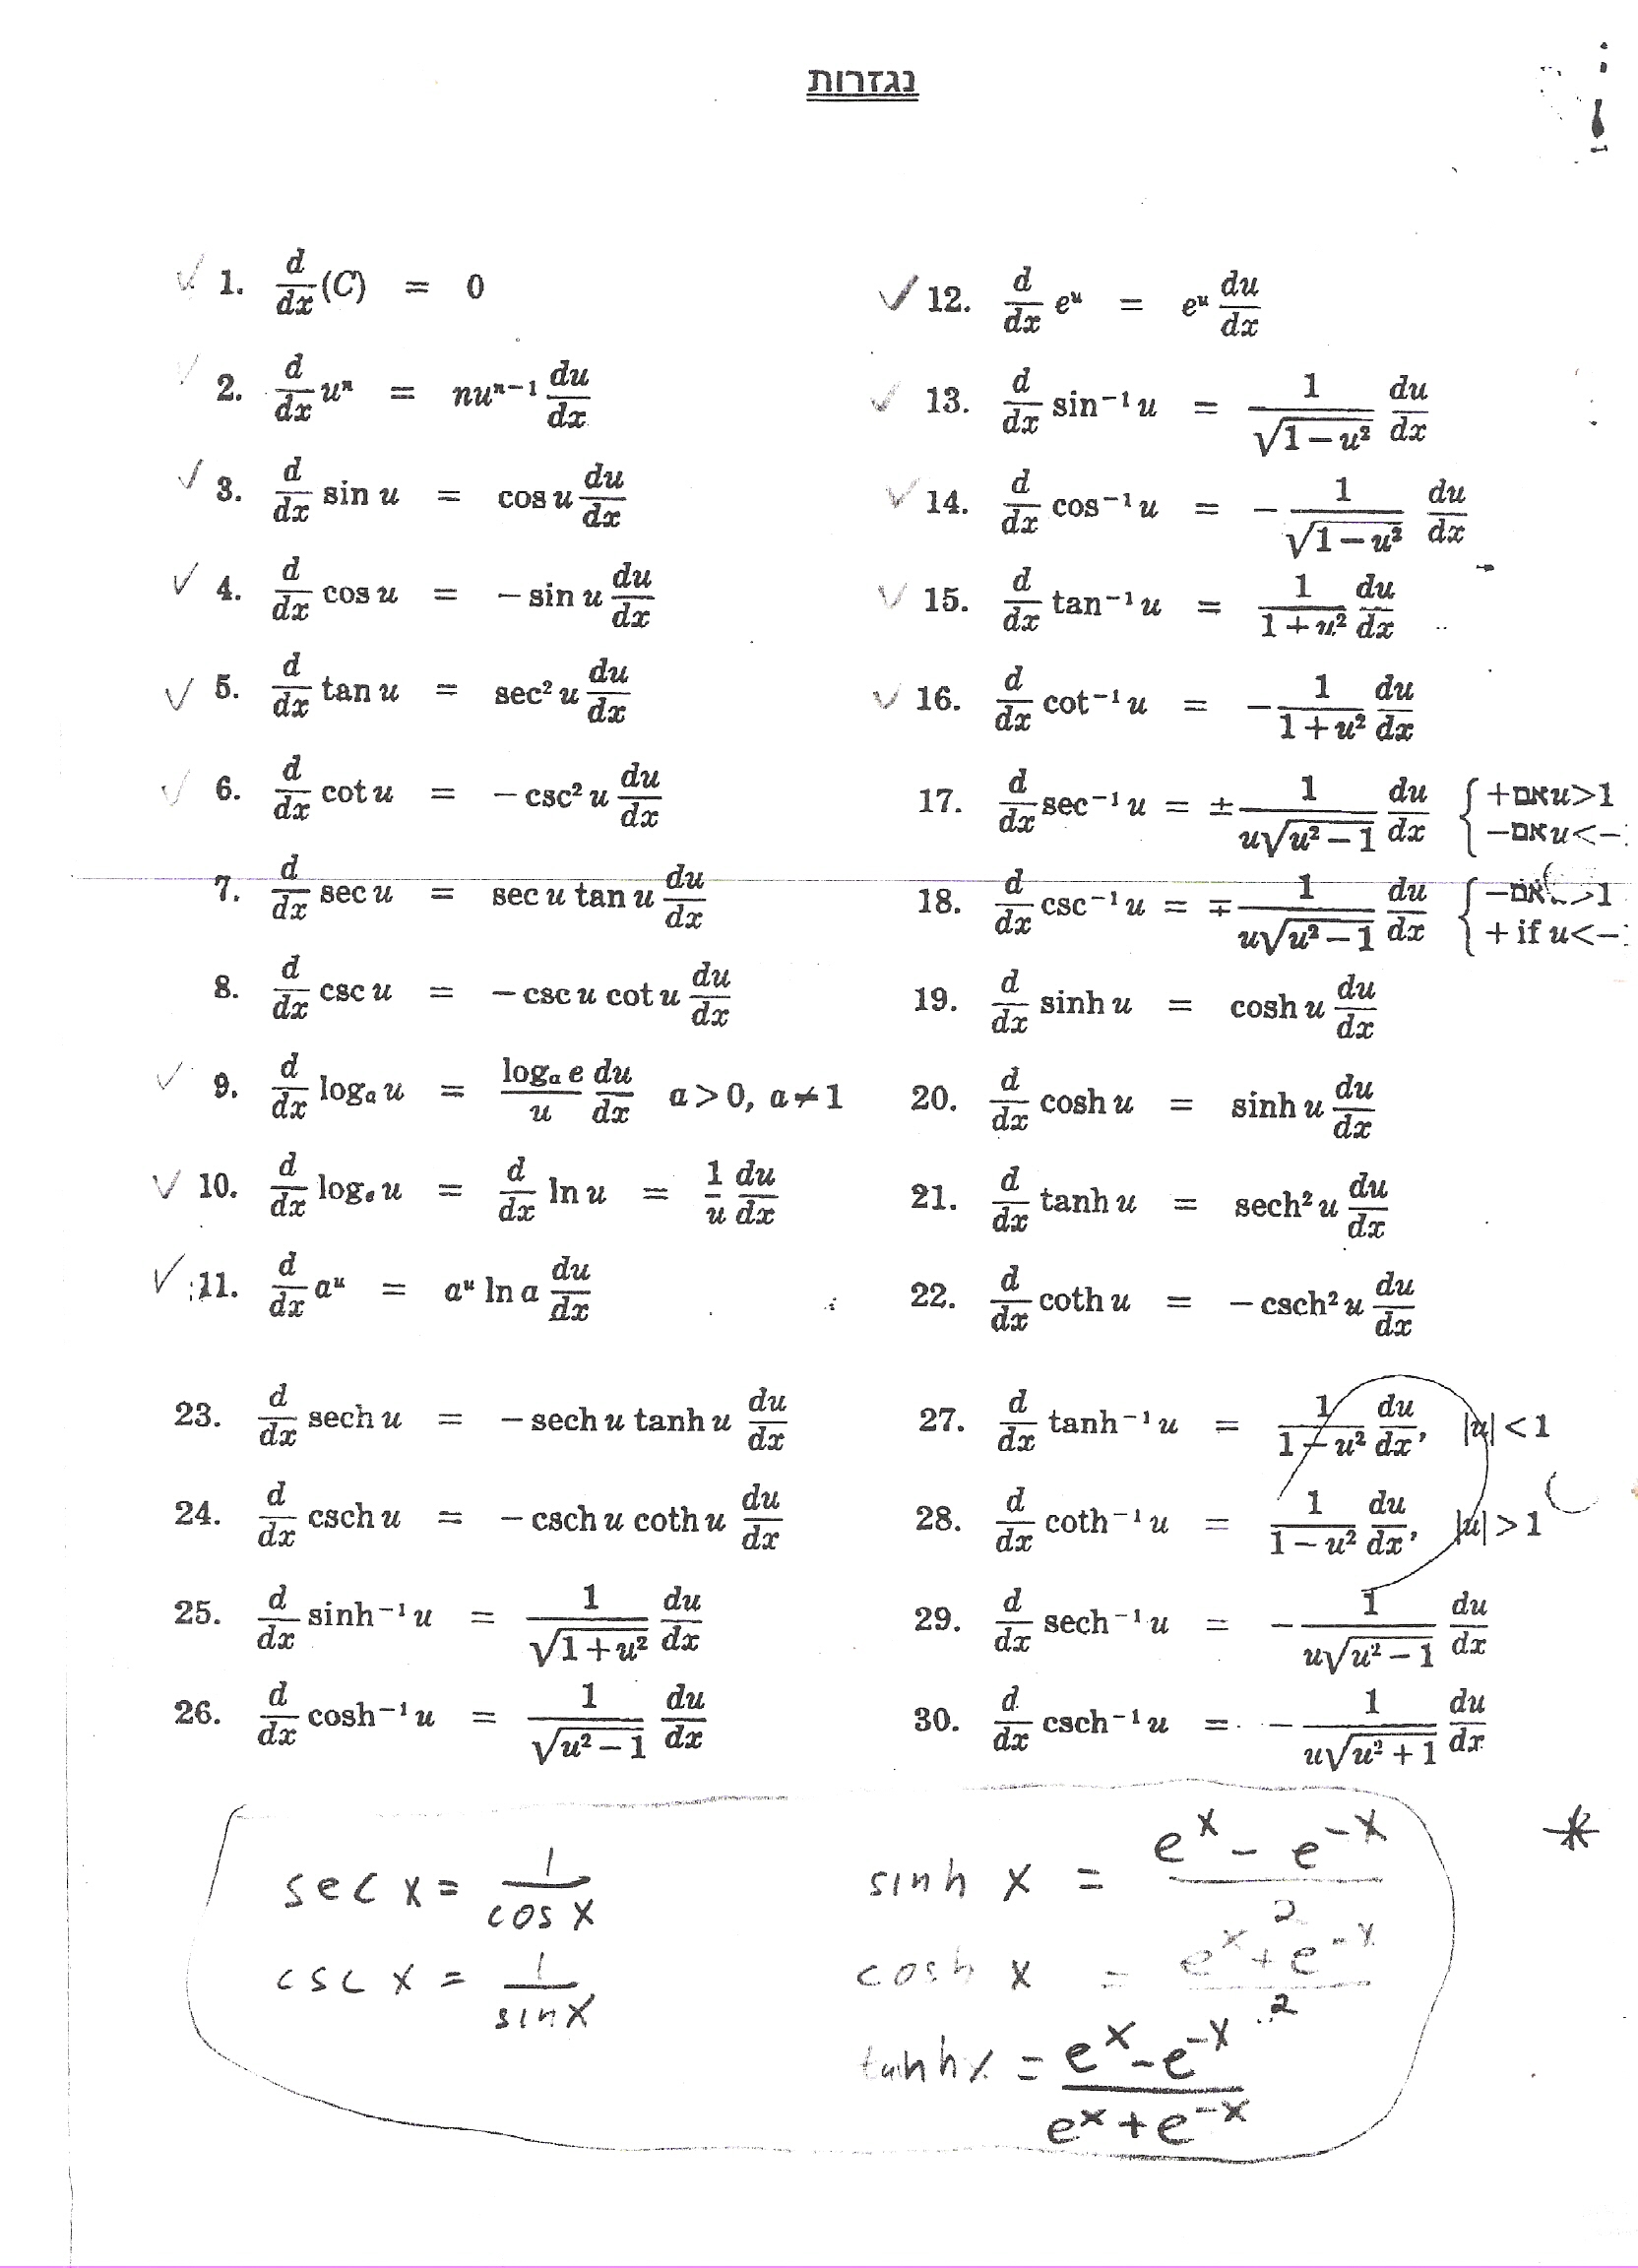 נגזרות
1. d/dx (C) = 0
2. d/dx uⁿ = nuⁿ⁻¹ du/dx
3. d/dx sin u = cos u du/dx
4. d/dx cos u = − sin u du/dx
5. d/dx tan u = sec² u du/dx
6. d/dx cot u = − csc² u du/dx
7. d/dx sec u = sec u tan u du/dx
8. d/dx csc u = − csc u cot u du/dx
9. d/dx logₐ u = logₐ e/u du/dx a > 0, a ≠ 1
10. d/dx logₑ u = d/dx ln u = 1/u du/dx
11. d/dx aᵘ = aᵘ ln a du/dx
12. d/dx eᵘ = eᵘ du/dx
13. d/dx sin⁻¹ u = 1/√(1 − u²) du/dx
14. d/dx cos⁻¹ u = − 1/√(1 − u²) du/dx
15. d/dx tan⁻¹ u = 1/(1 + u²) du/dx
16. d/dx cot⁻¹ u = − 1/(1 + u²) du/dx
17. d/dx sec⁻¹ u = ± 1/(u√(u² − 1)) du/dx { + אם u > 1
− אם u < −
18. d/dx csc⁻¹ u = ∓ 1/(u√(u² − 1)) du/dx { − אם > 1
+ if u < −
19. d/dx sinh u = cosh u du/dx
20. d/dx cosh u = sinh u du/dx
21. d/dx tanh u = sech² u du/dx
22. d/dx coth u = − csch² u du/dx
23. d/dx sech u = − sech u tanh u du/dx
24. d/dx csch u = − csch u coth u du/dx
25. d/dx sinh⁻¹ u = 1/√(1 + u²) du/dx
26. d/dx cosh⁻¹ u = 1/√(u² − 1) du/dx
27. d/dx tanh⁻¹ u = 1/(1 − u²) du/dx, |u| < 1
28. d/dx coth⁻¹ u = 1/(1 − u²) du/dx, |u| > 1
29. d/dx sech⁻¹ u = − 1/(u√(u² − 1)) du/dx
30. d/dx csch⁻¹ u = − 1/(u√(u² + 1)) du/dx
sec x = 1/cos x
csc x = 1/sin x
sinh x = (eˣ − e⁻ˣ)/2
cosh x = (eˣ + e⁻ˣ)/2
tanh x = (eˣ − e⁻ˣ)/(eˣ + e⁻ˣ)
*